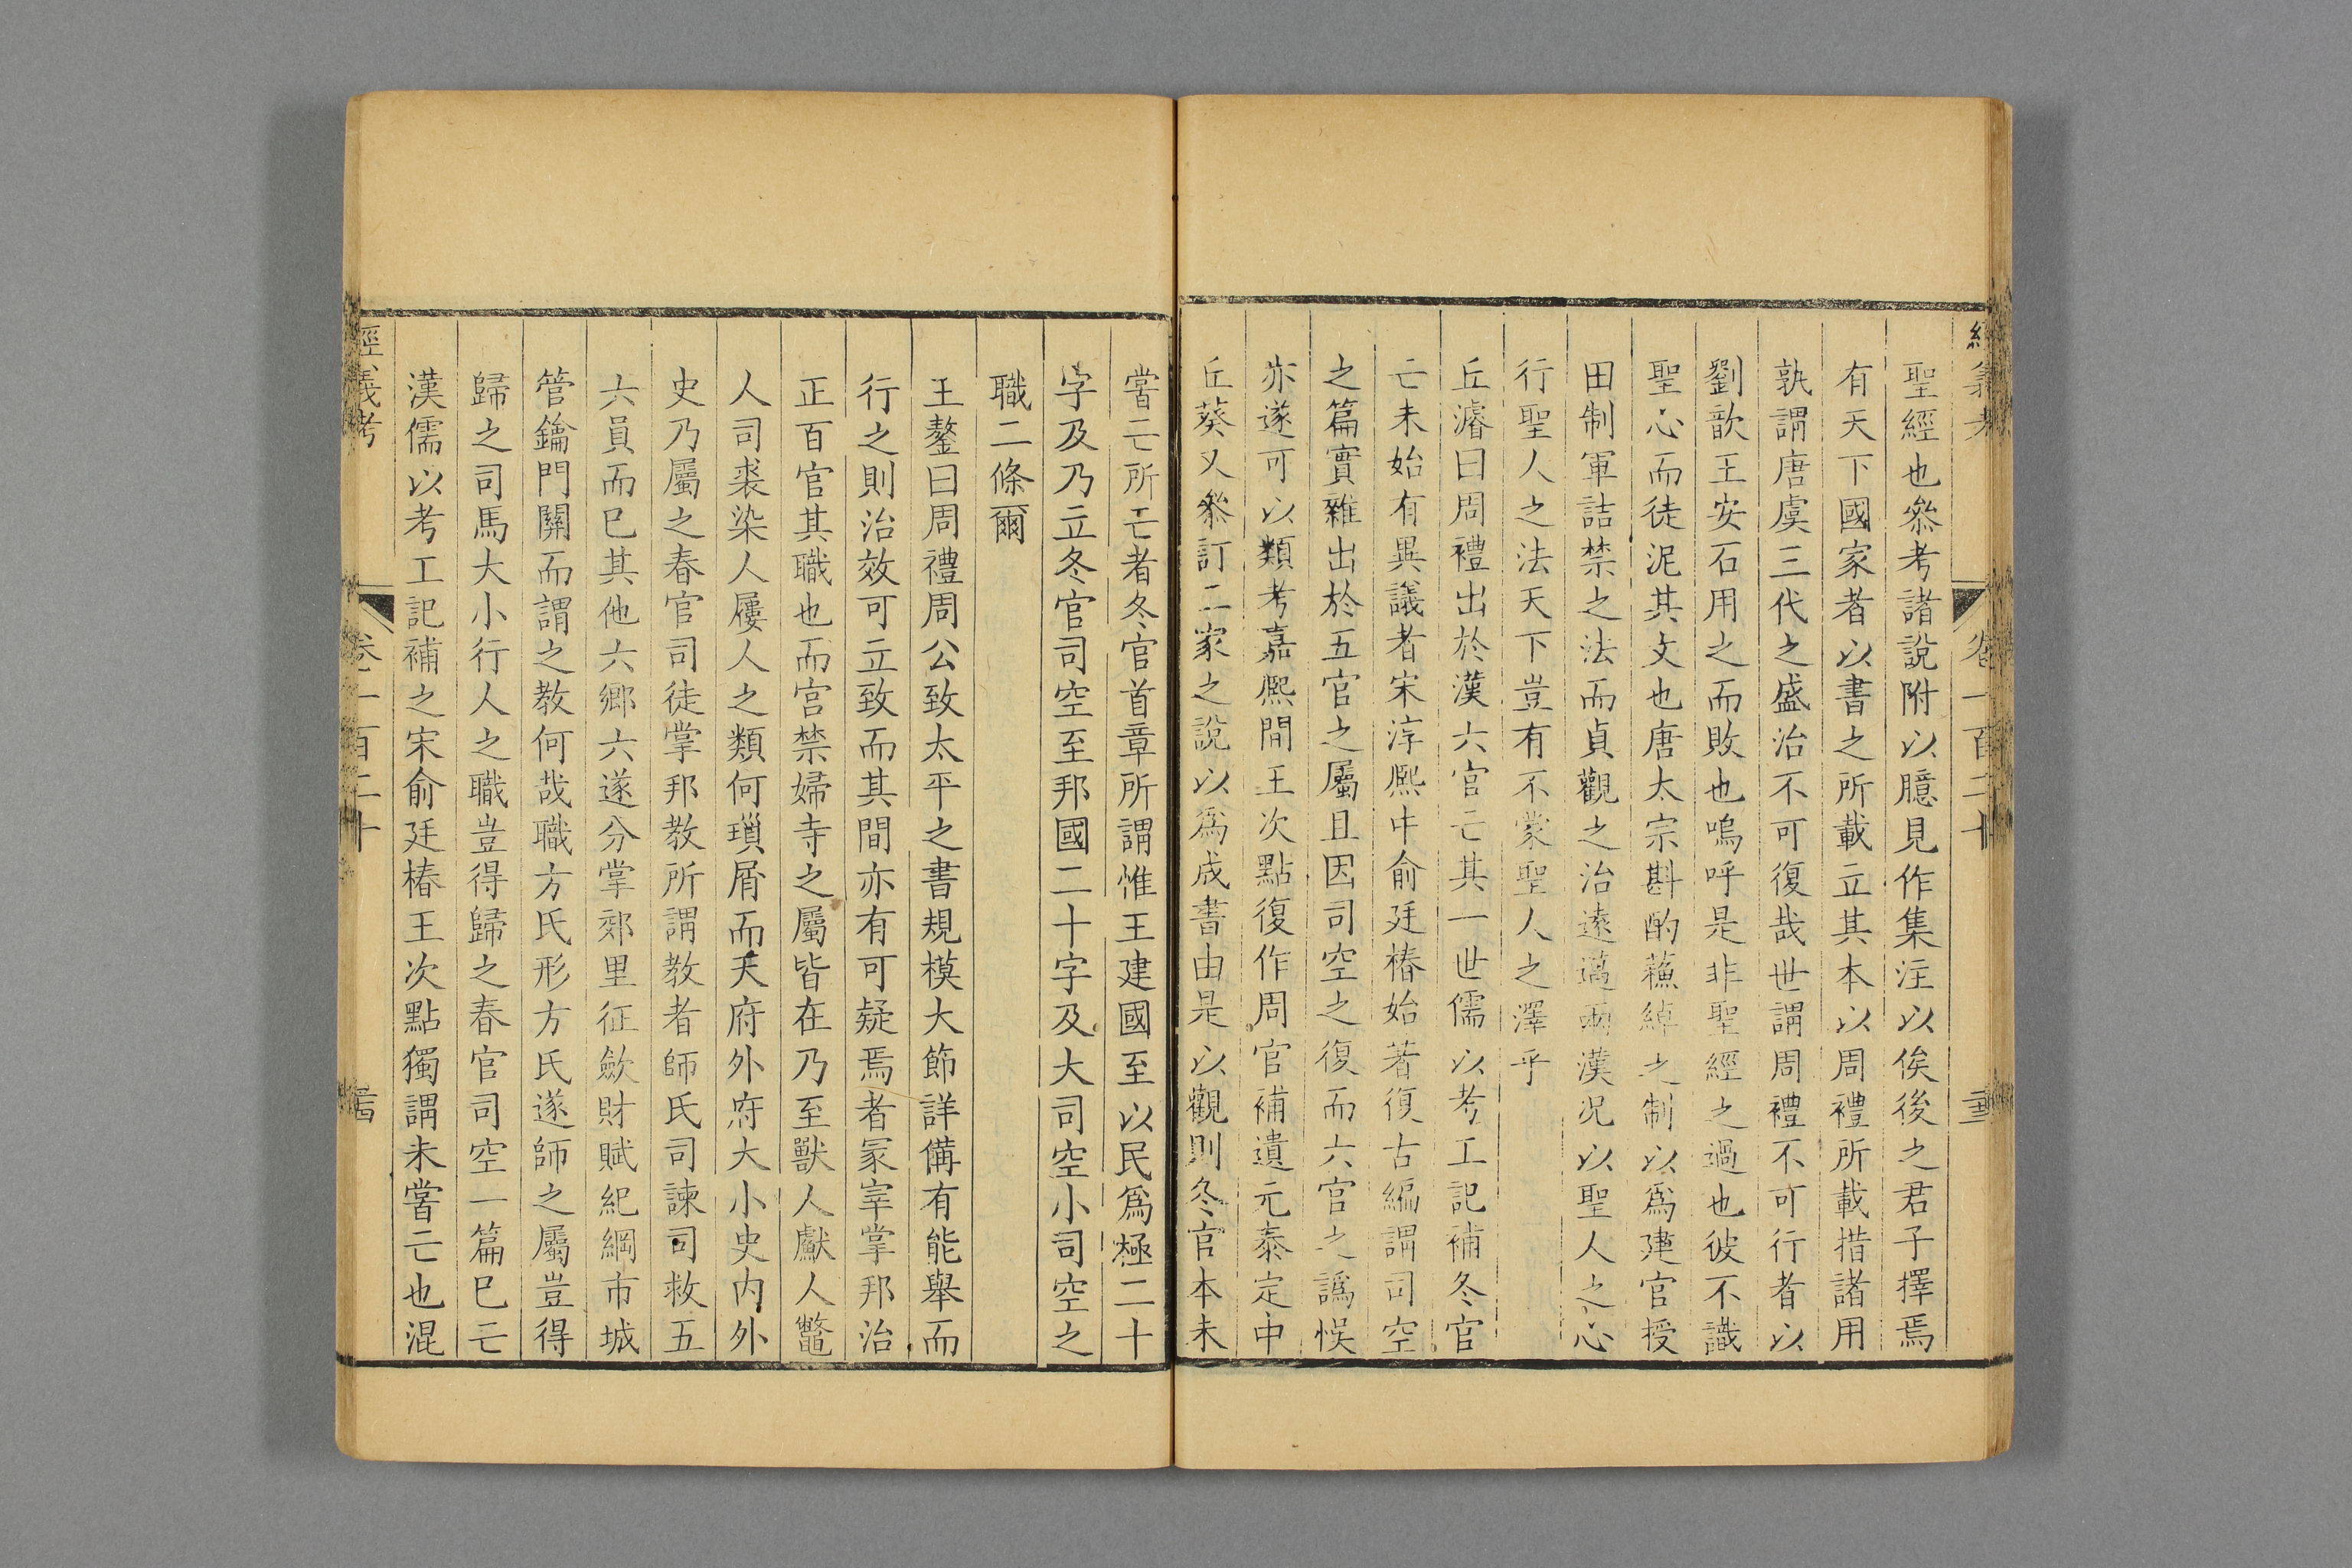 聖經也叅考諸說附以臆見作集注以俟後之君子擇焉
有天下國家者以書之所載立其本以周禮所載措諸用
孰謂唐虞三代之盛治不可復哉世謂周禮不可行者以
劉歆王安石用之而敗也嗚呼是非聖經之過也彼不識
聖心而徒泥其文也唐太宗斟酌蘓綽之制以爲建官授
田制軍詰禁之法而貞觀之治遠邁兩漢况以聖人之心
行聖人之法天下豈有不蒙聖人之澤乎
丘濬曰周禮出於漢六官亡其一世儒以考工記補冬官
亡未始有異議者宋淳熈中俞廷椿始著復古編謂司空
之篇實雜出於五官之屬且因司空之復而六官之譌悞
亦遂可以類考嘉熈間王次點復作周官補遺元泰定中
丘葵又叅訂二家之說以爲成書由是以觀則冬官本未
嘗亡所亡者冬官首章所謂惟王建國至以民爲極二十
字及乃立冬官司空至邦國二十字及大司空小司空之
職二條爾
王鏊曰周禮周公致太平之書規模大節詳備有能舉而
行之則治效可立致而其間亦有可疑焉者冡宰掌邦治
正百官其職也而宫禁婦寺之屬皆在乃至獸人䱷人鼈
人司裘染人屨人之類何瑣屑而天府外府大小史内外
史乃屬之春官司徒掌邦教所謂教者師氏司諫司救五
六員而巳其他六鄉六遂分掌郊里征歛財賦紀綱市城
管鑰門關而謂之教何哉職方氏形方氏遂師之屬豈得
歸之司馬大小行人之職豈得歸之春官司空一篇巳亡
漢儒以考工記補之宋俞廷椿王次點獨謂未嘗亡也混
經義考
卷二百二十